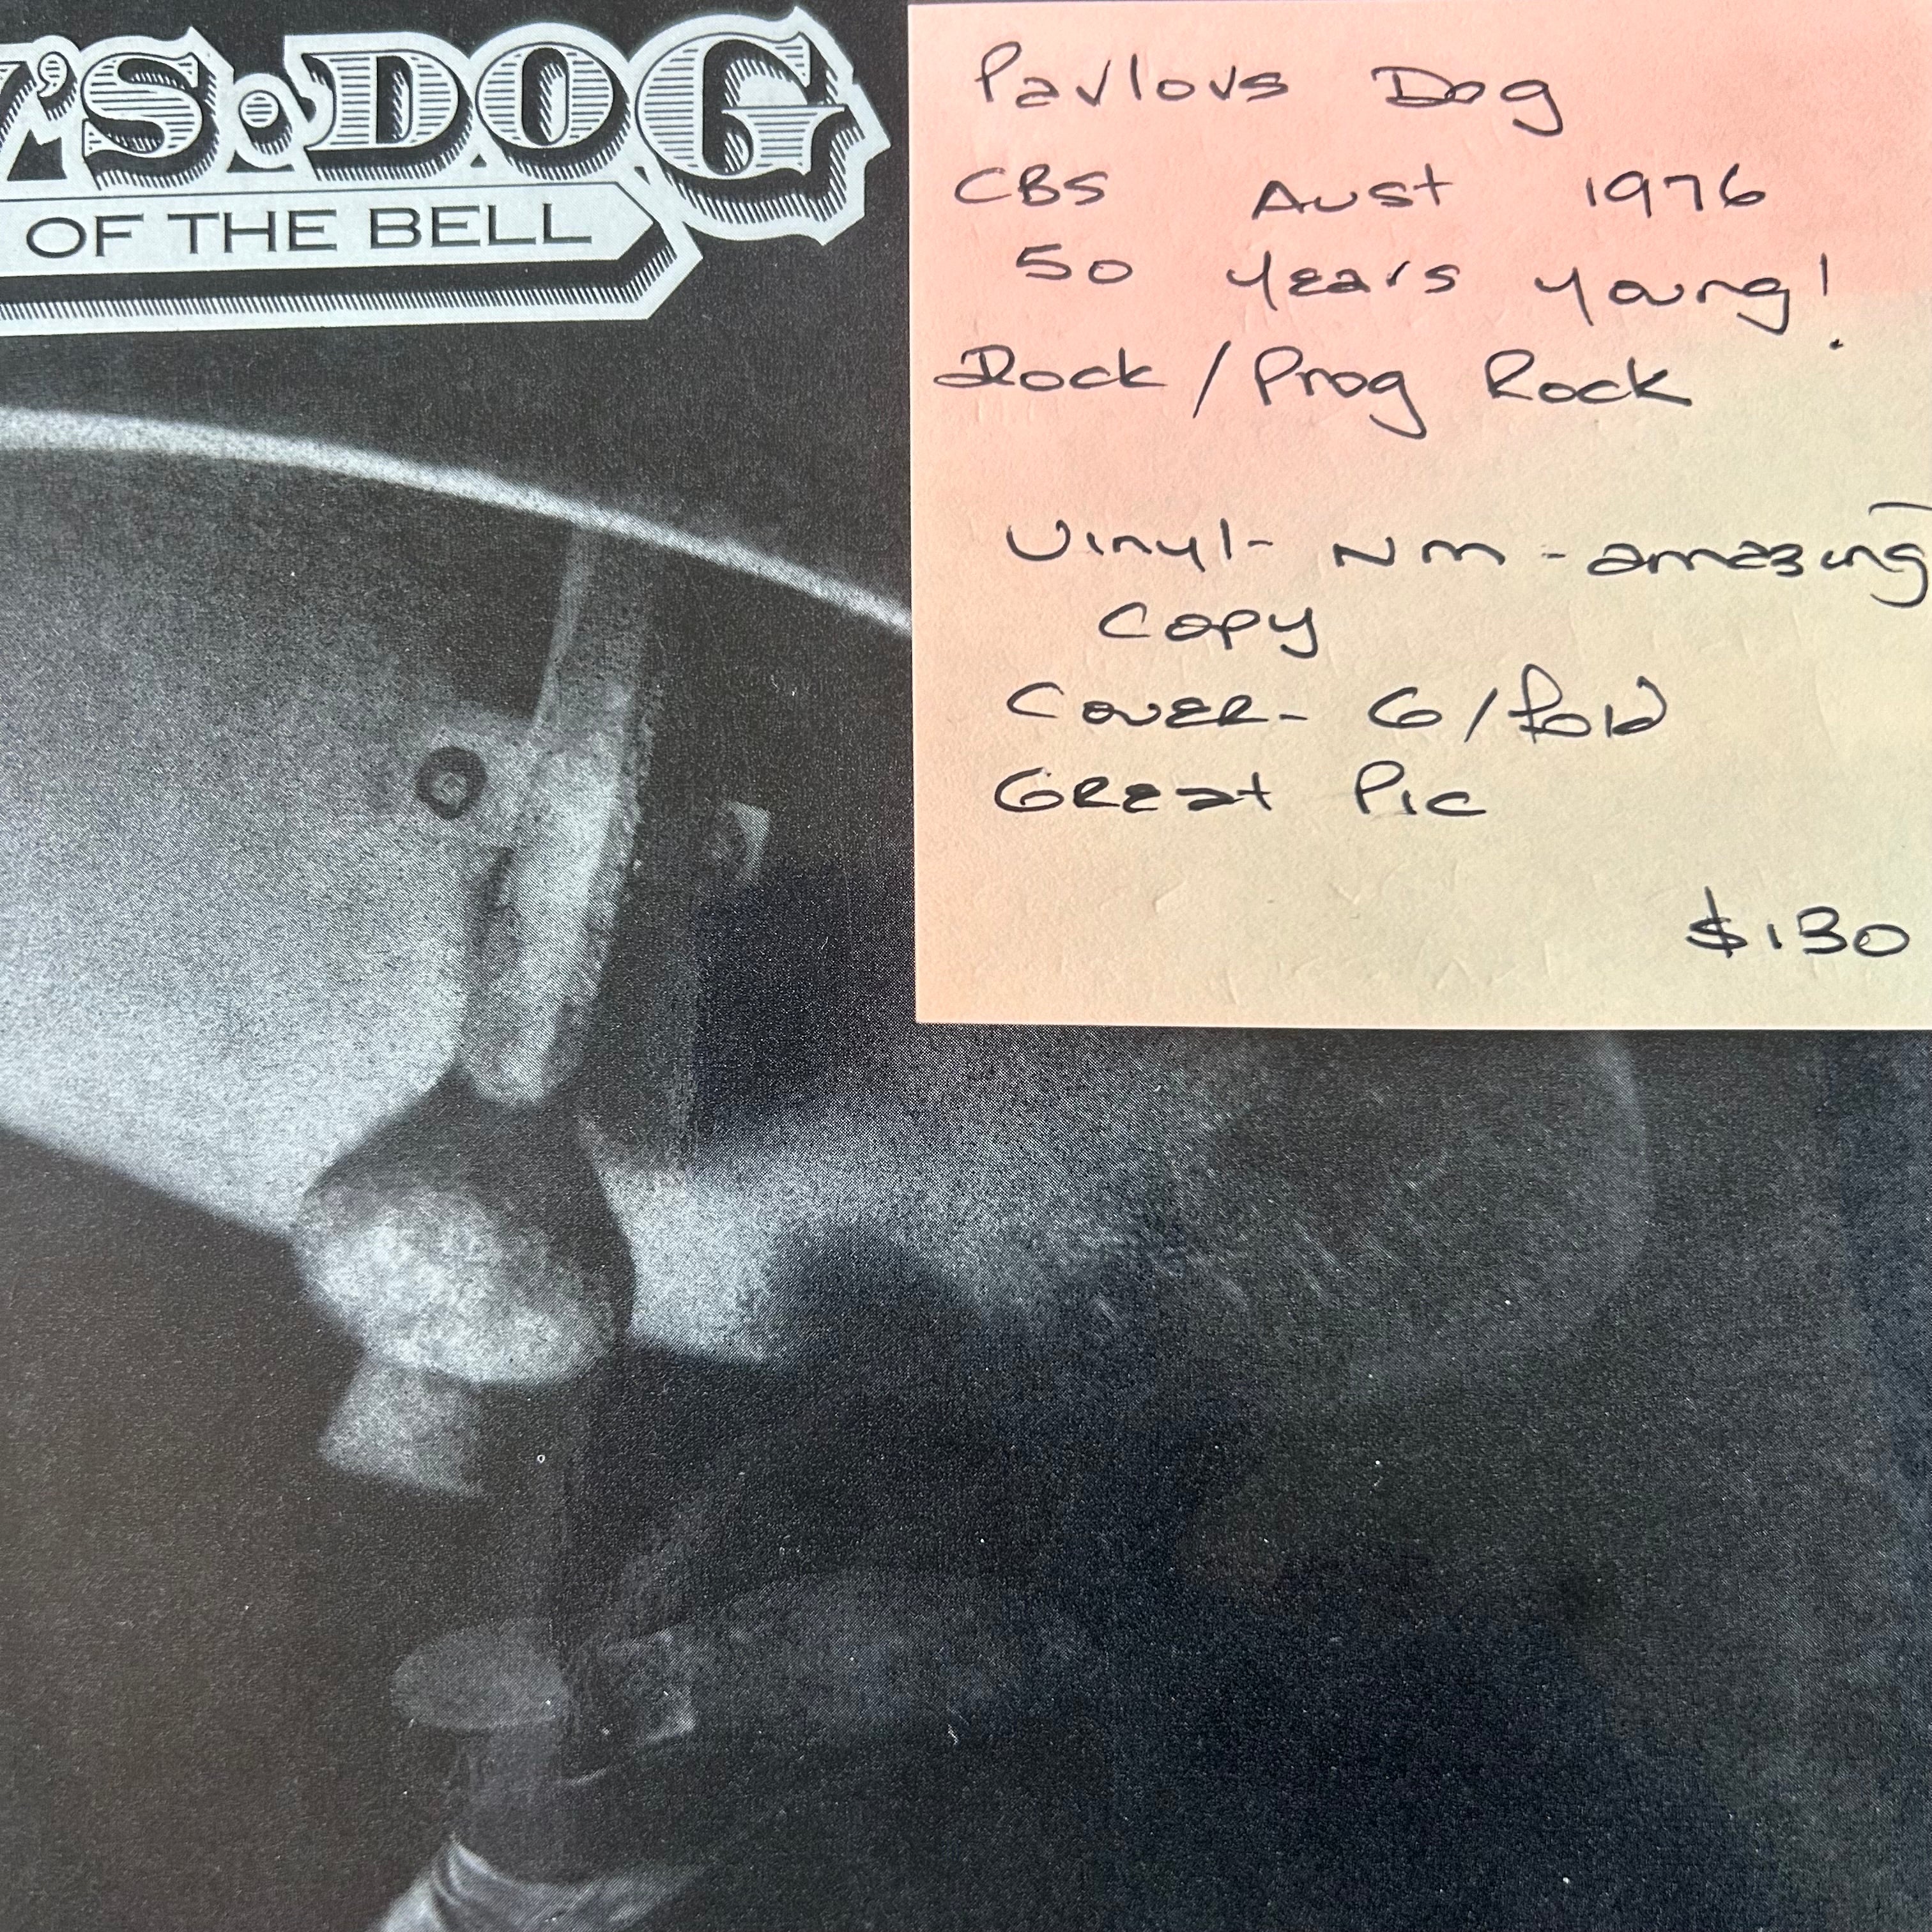 'S·DOG
OF THE BELL
Pavlovs Dog
CBS Aust 1976
50 years young!
Rock / Prog Rock
Vinyl - NM - amazing
Copy
Cover - G/fold
Great Pic
$130